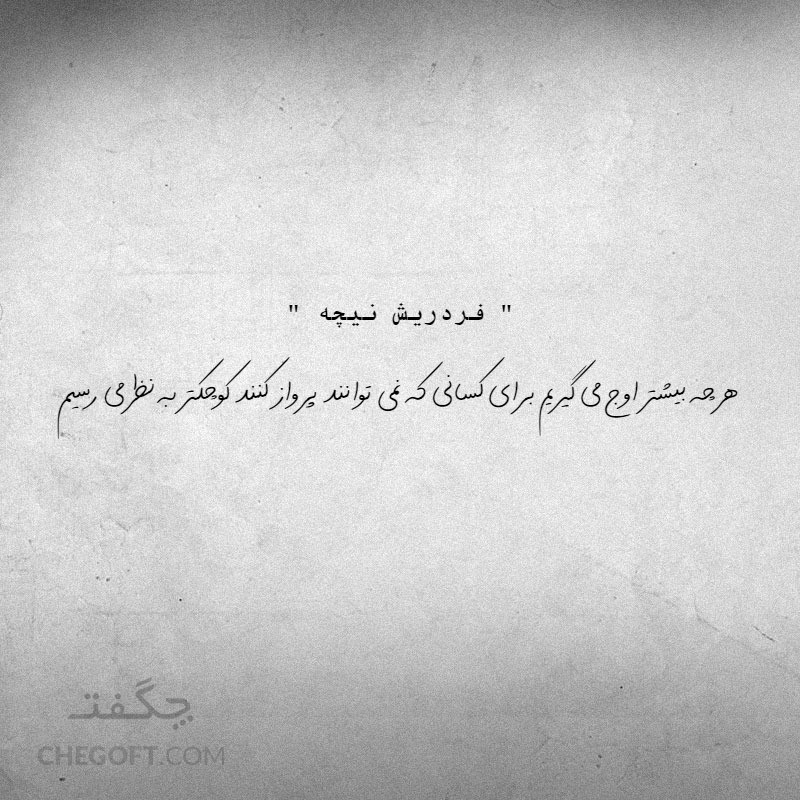 " فردریش نیچه "
هر چه بیشتر اوج می گیریم برای کسانی که نمی توانند پرواز کنند کوچکتر به نظر می رسیم
چگفت
CHEGOFT.COM